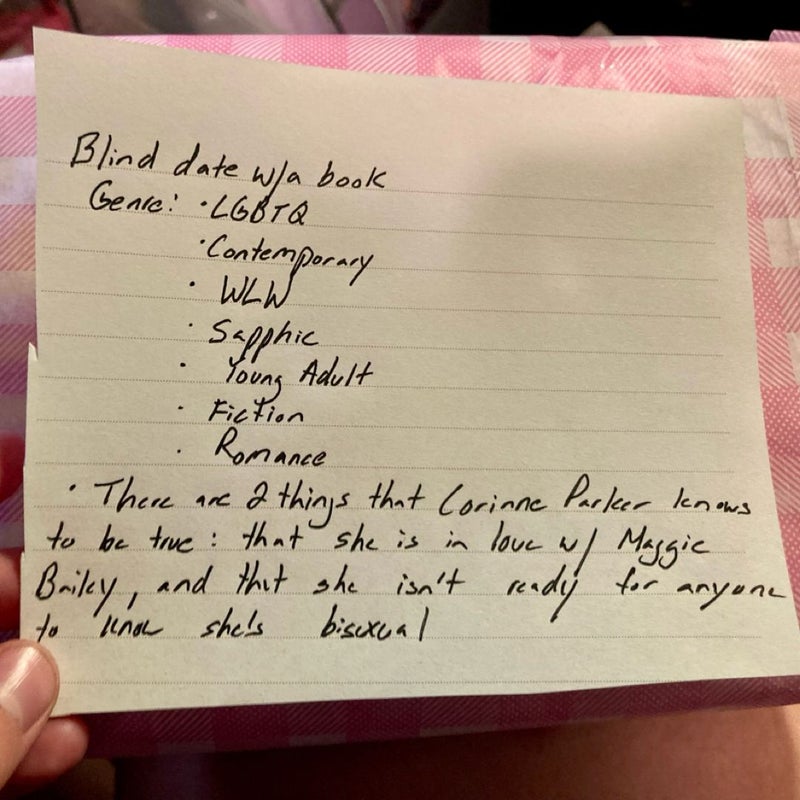 Blind date w/a book
Genre: • LGBTQ
• Contemporary
• WLW
• Sapphic
• Young Adult
• Fiction
• Romance
• There are 2 things that Corinne Parker knows
to be true: that she is in love w/ Maggie
Bailey, and that she isn't ready for anyone
to know she's bisexual